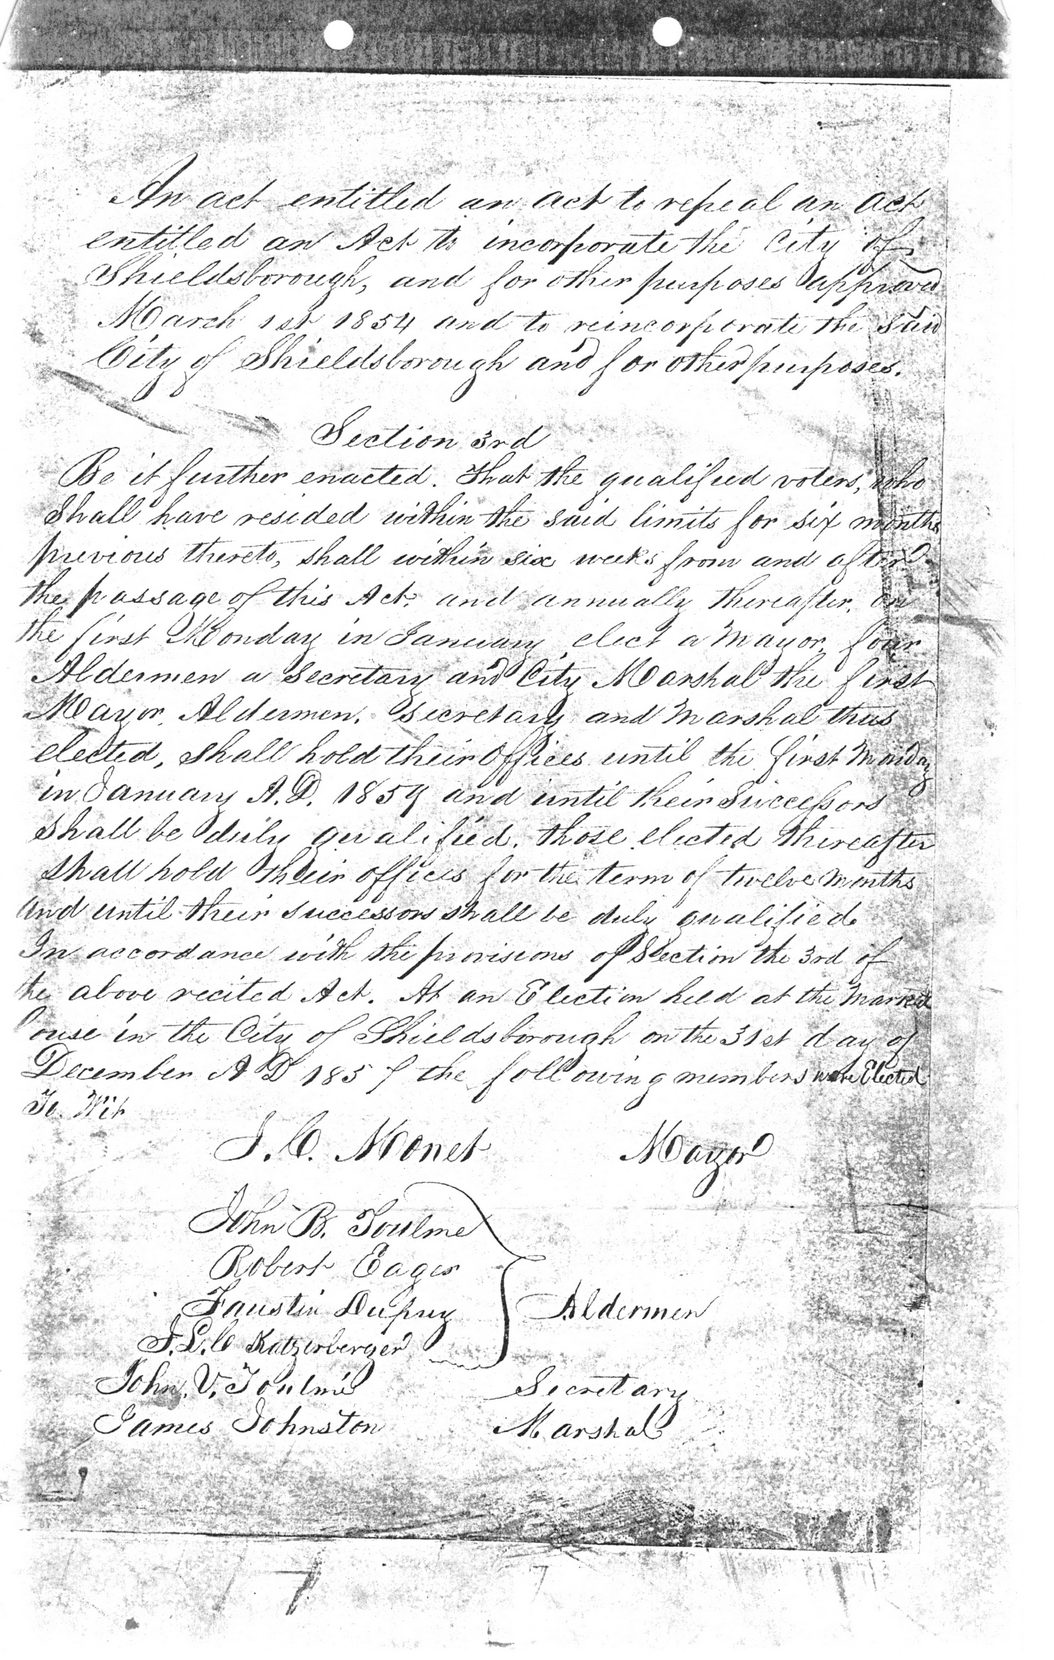 An act entitled an act to repeal an act
entitled an Act to incorporate the City of
Shieldsborough, and for other purposes approved
March 1st 1854 and to reincorporate the Said
City of Shieldsborough and for other purposes.
Section 3rd
Be it further enacted. That the qualified voters, who
Shall have resided within the said limits for six months
previous thereto, shall within six weeks from and after
the passage of this Act. and annually thereafter, on
the first Monday in January elect a Mayor, four
Aldermen a Secretary and City Marshal the first
Mayor, Aldermen, Secretary and Marshal thus
elected, shall hold their Offices until the first Monday
in January A.D. 1859 and until their Successors
Shall be duly qualified. those elected thereafter
shall hold their offices for the term of twelve Months
And until their successors shall be duly qualified
In accordance with the provisions of Section the 3rd of
the above recited Act. At an Election held at the Market
ouse in the City of Shieldsborough on the 31st day of
December A D 185 the following members were Elected
To Wit
J. C. Monet Mayor
John B. Toulme
Robert Eager
Faustin Dupuy Aldermen
J. L. C Katzerberger
John. V. Toulmé Secretary
James Johnston Marshal